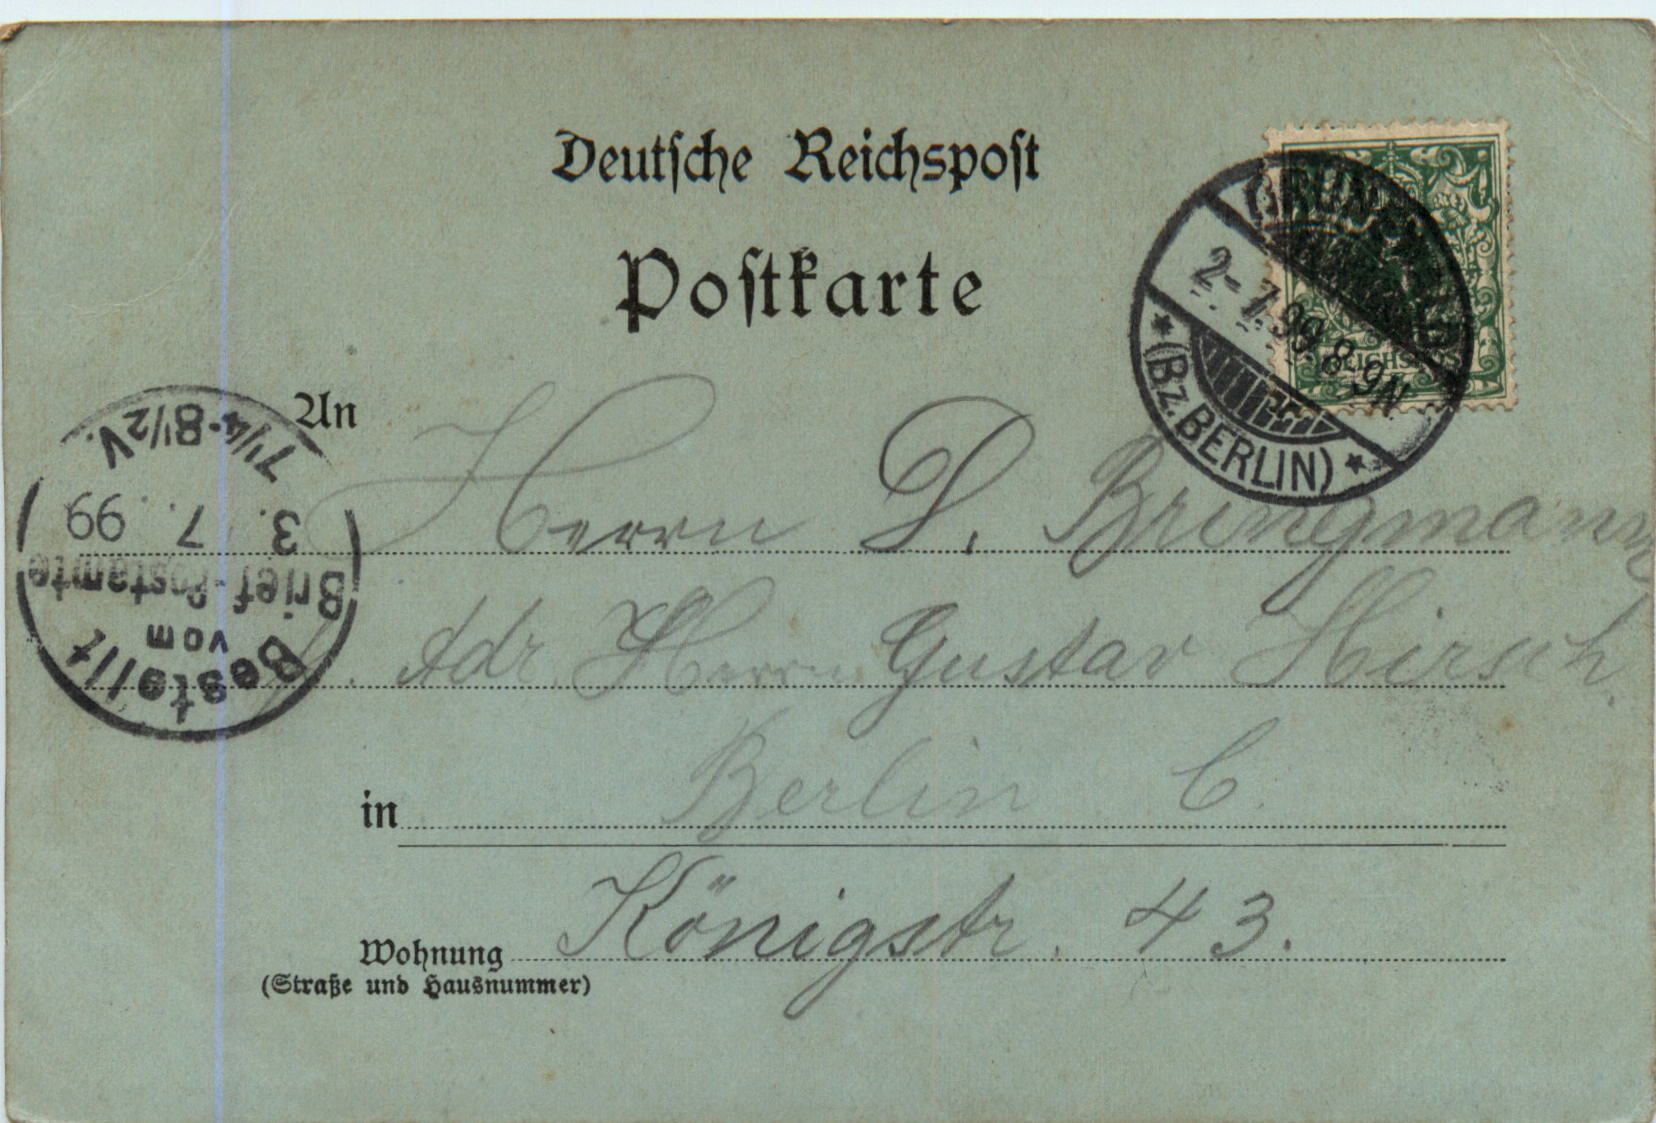 Deutsche Reichspost
Postkarte
GRUNEWALD
2-7.99.8-9N
* (Bz. BERLIN) *
REICHSPOST
An
Herrn D. Bringmann
Adr. Herrn Gustav Hirsch.
in Berlin C.
Wohnung Königstr. 43.
(Straße und Hausnummer)
Bestellt
vom
Brief-Postamte
3. 7. 99
7¼-8½V.